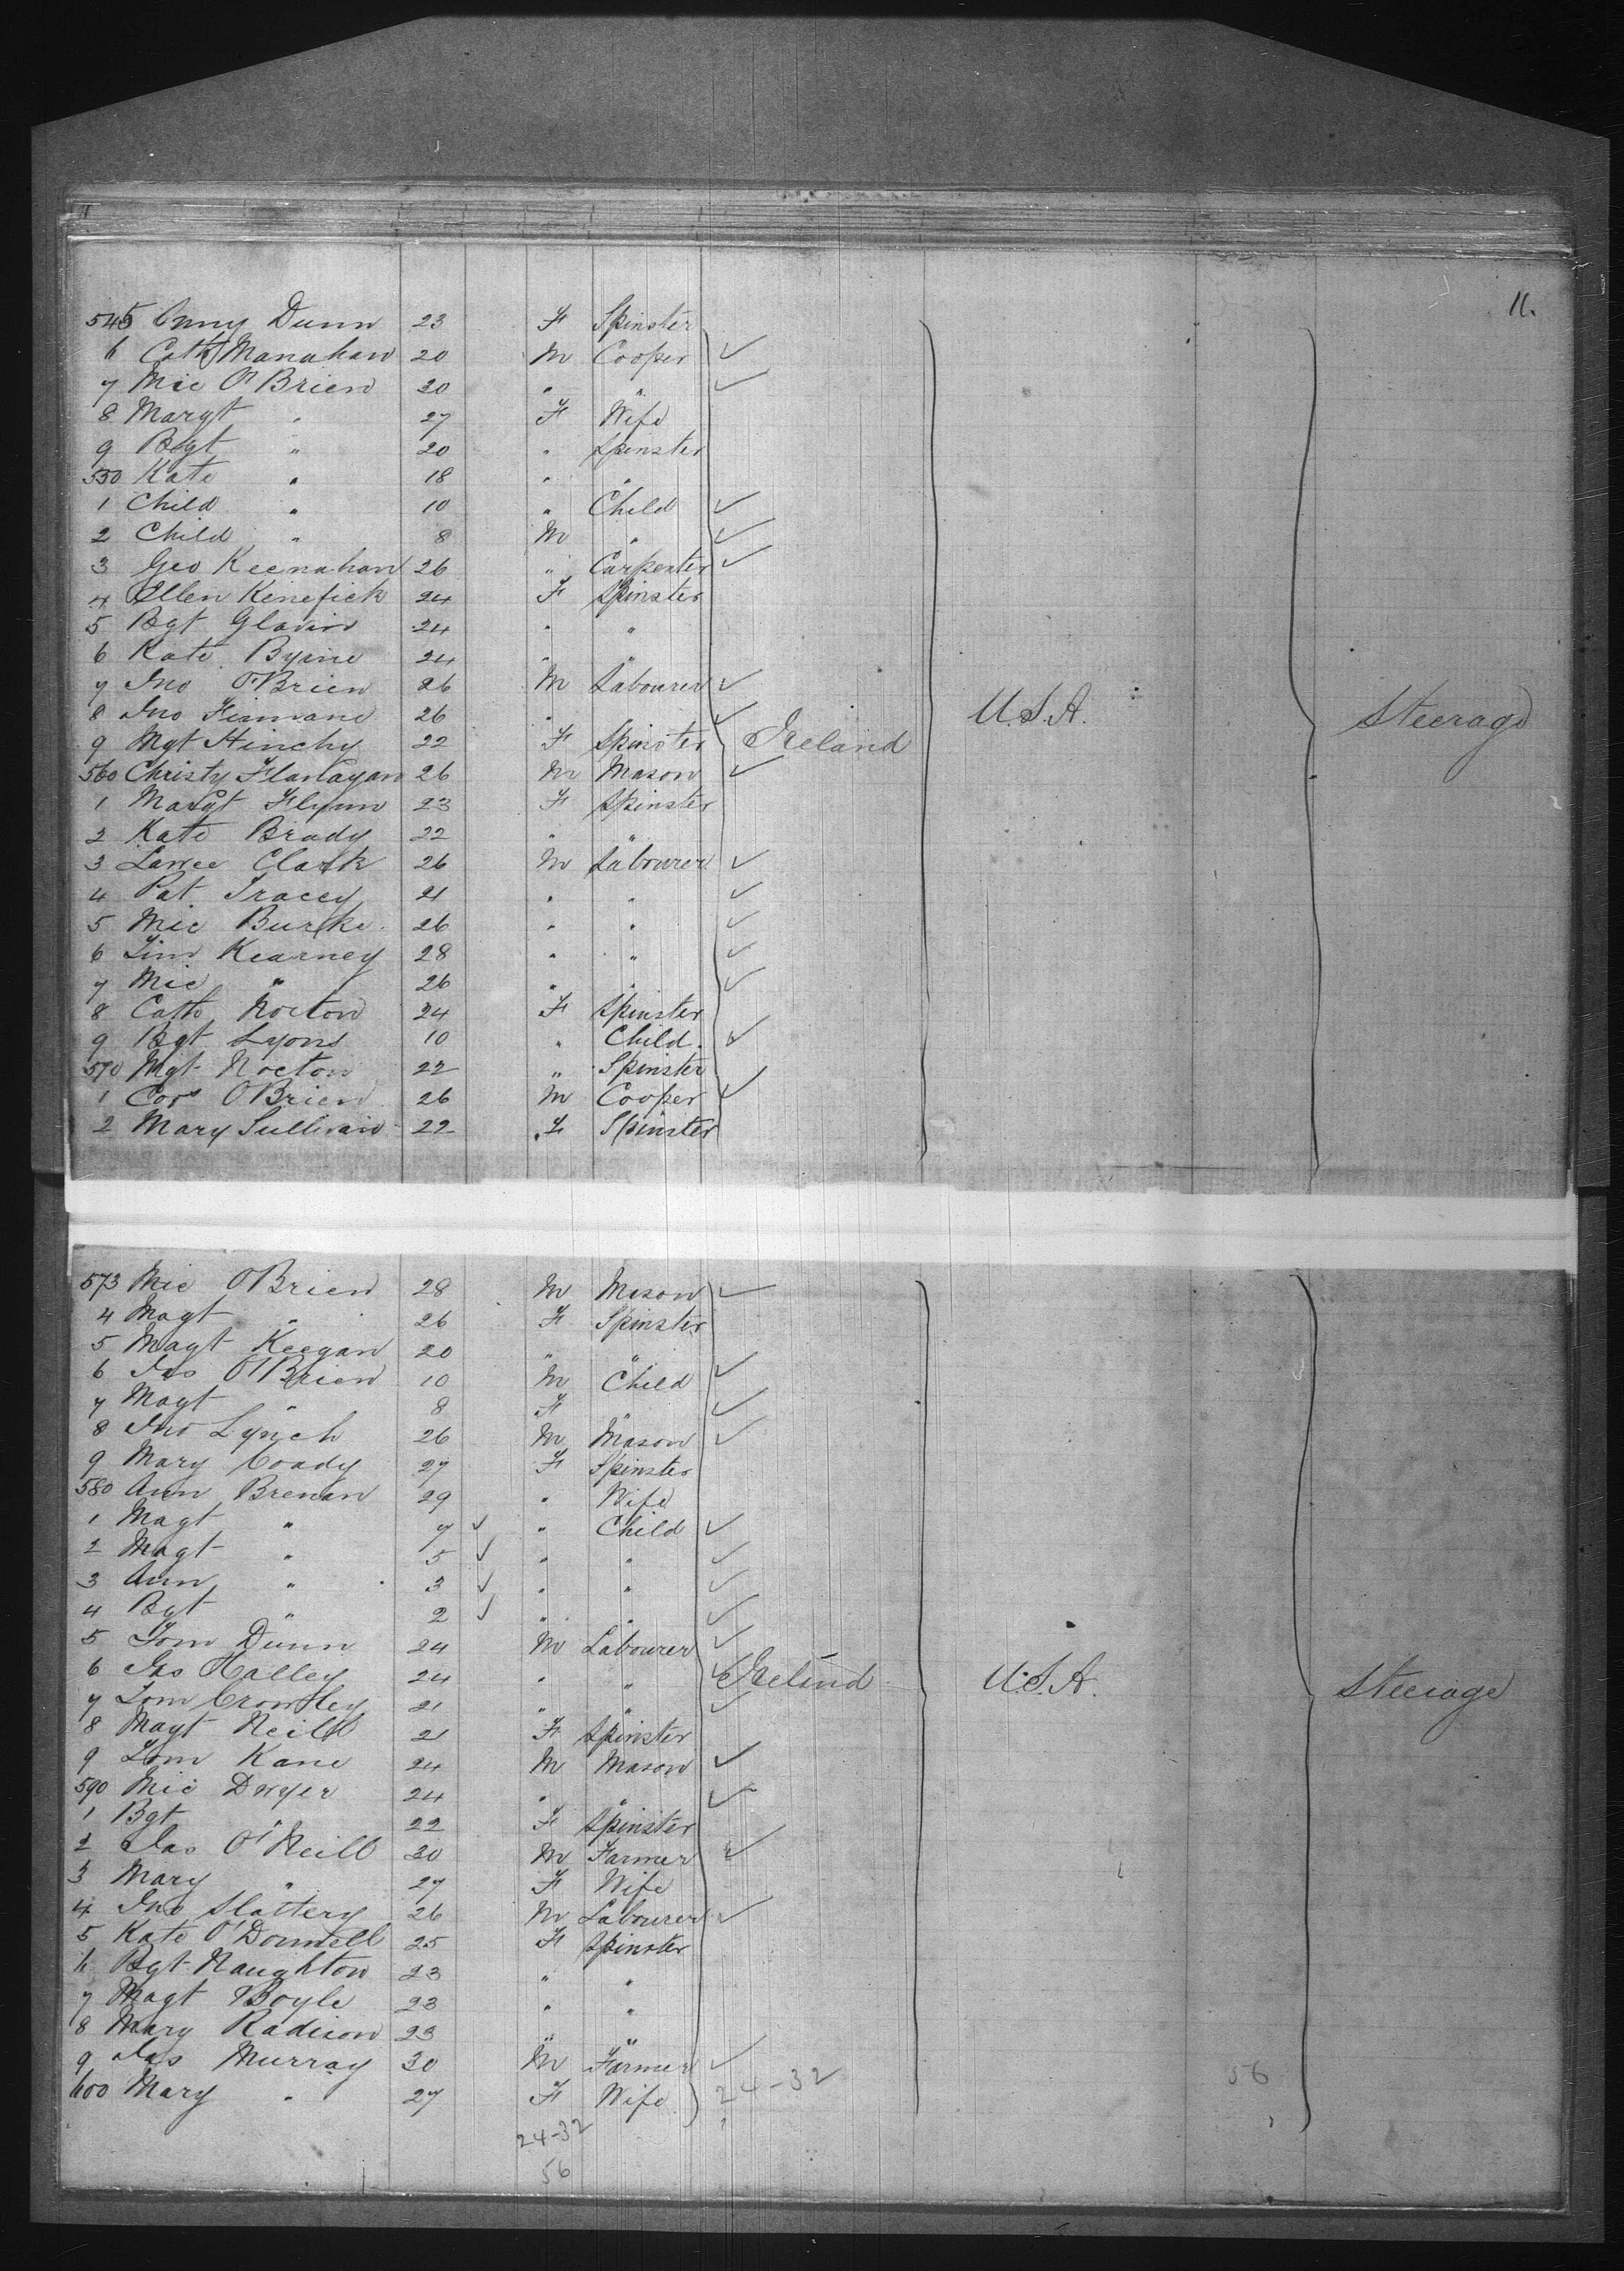 11.
545 Anny Dunn 23 F Spinster
6 Cath Manahan 20 M Cooper ✓
7 Mic O'Brien 30 " " ✓
8 Margt " 27 F Wife
9 Bgt " 20 " Spinster
550 Kate " 18 " "
1 Child " 10 " Child ✓
2 Child " 8 M " ✓
3 Geo Keenahan 26 " Carpenter ✓
4 Ellen Kenefick 24 F Spinster
5 Bgt Glavin 24 " "
6 Kate Byrne 24 " "
7 Jno O'Brien 26 M Labourer ✓
8 Jno 26 " ✓ U.S.A. Steerage
9 Mgt Hinchy 22 F Spinster Ireland
560 Christy Flanagan 26 M Mason ✓
1 Margt Flynn 23 F Spinster
2 Kate Brady 22 " "
3 Lawce Clark 26 M Labourer ✓
4 Pat Tracey 21 " " ✓
5 Mic Burke 26 " " ✓
6 Tim Kearney 28 " " ✓
7 Mic " 26 " " ✓
8 Cath Norton 24 F Spinster
9 Bgt Lyons 10 " Child ✓
570 Mgt Norton 22 " Spinster
1 Cors O'Brien 26 M Cooper ✓
2 Mary Sullivan 22 F Spinster
573 Mic O'Brien 28 M Mason ✓
4 Magt " 26 F Spinster
5 Magt Keegan 20 " "
6 Jas O'Brien 10 M Child ✓
7 Magt " 8 F " ✓
8 Jno Lynch 26 M Mason ✓
9 Mary Coady 27 F Spinster
580 Ann Brenan 29 " Wife
1 Magt " 7 ✓ " Child ✓
2 Magt " 5 ✓ " " ✓
3 Ann " 3 ✓ " " ✓
4 Bgt " 2 ✓ " " ✓
5 Tom Dunn 24 M Labourer ✓
6 Jas Halley 24 " " ✓ Ireland U.S.A. Steerage
7 Tom Crowley 21 " " ✓
8 Magt Neill 21 F Spinster
9 Tom Kane 24 M Mason ✓
590 Mic Dwyer 24 " " ✓
1 Bgt " 22 F Spinster
2 Jas O'Neill 30 M Farmer ✓
3 Mary " 27 F Wife
4 Jno Slattery 26 M Labourer ✓
5 Kate O'Donnell 25 F Spinster
6 Bgt Naughton 23 " "
7 Magt Boyle 23 " "
8 Mary Radison 23 " "
9 Jas Murray 30 M Farmer ✓
600 Mary " 27 F Wife 24-32 56
24-32
56